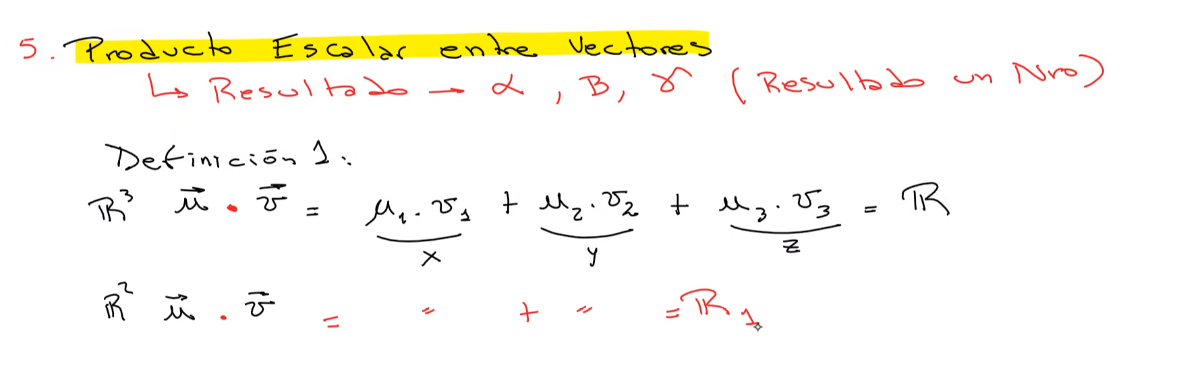 5. Producto Escalar entre Vectores
↳ Resultado → α, B, γ (Resultado un Nro)
Definición 1:
ℝ³ u⃗ · v⃗ = u₁·v₁ + u₂·v₂ + u₃·v₃ = ℝ
x y z
ℝ² u⃗ · v⃗ = " + " = ℝ 1